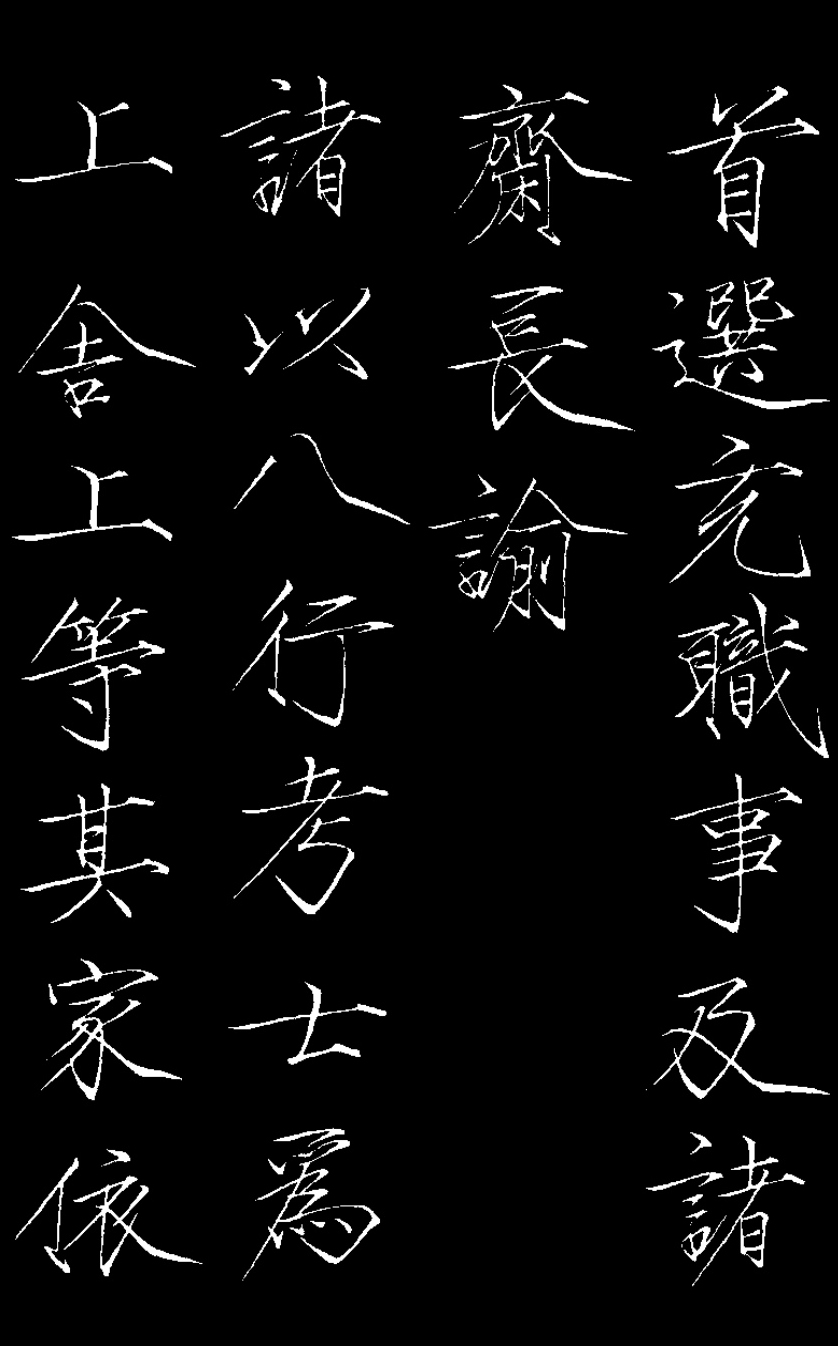 首選充職事及諸
齋長諭
諸以八行考士為
上舍上等其家依